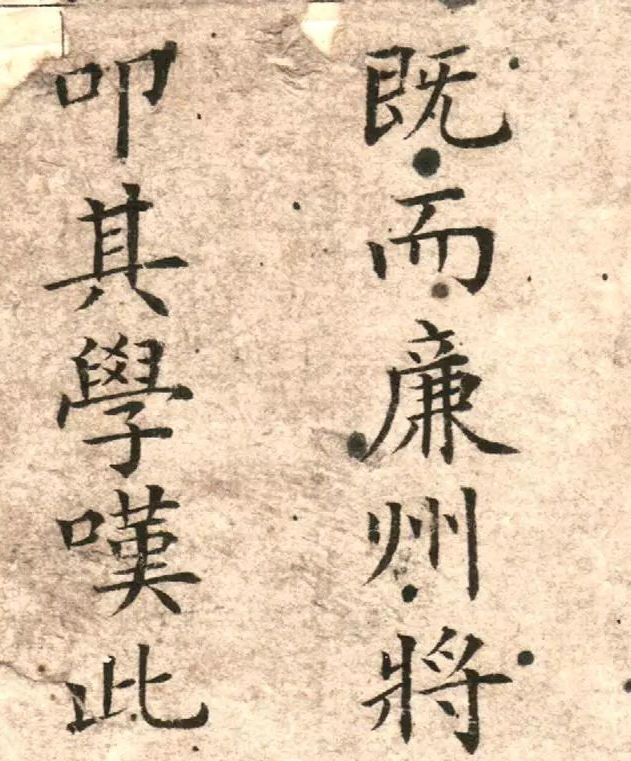 既而廉州將
叩其學嘆此